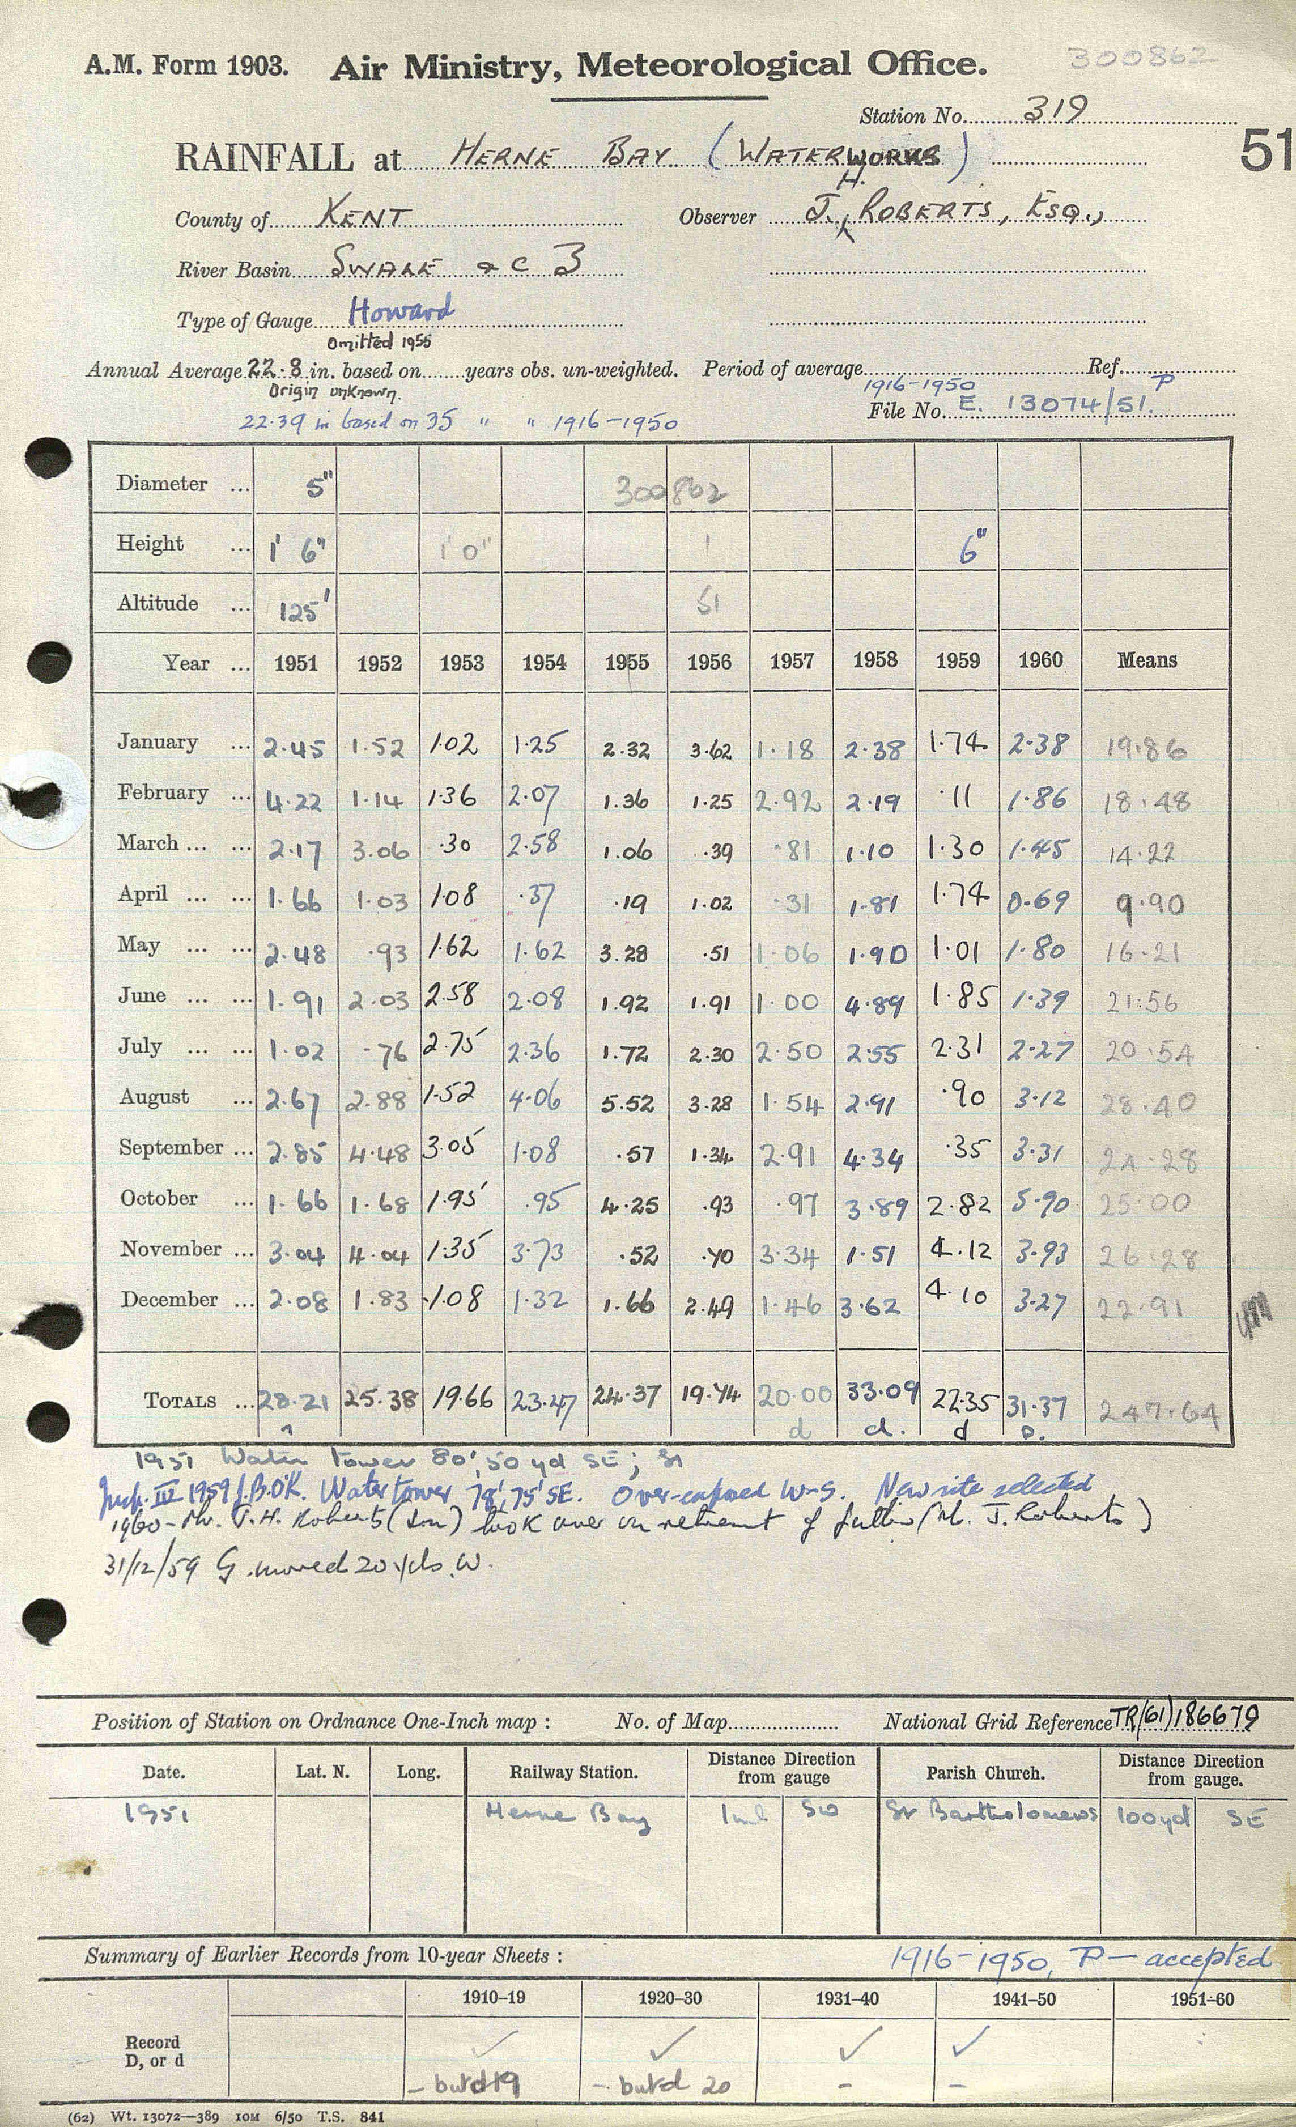 300862
A.M. Form 1903. Air Ministry, Meteorological Office.
Station No. 319
51
RAINFALL at HERNE BAY (WATERWORKS)
County of KENT Observer J. H. ROBERTS, ESQ.,
River Basin SWALE & C 3
Type of Gauge Howard
Omitted 1955
Annual Average 22.8 in. based on years obs. un-weighted. Period of average Ref.
Origin unknown. 1916-1950 P
22.39 in based on 35 " " 1916-1950 File No. E. 13074/51.
Diameter ... 5" 300862
Height ... 1' 6" 1' 0" 1 6"
Altitude ... 125' 51
Year ... 1951 1952 1953 1954 1955 1956 1957 1958 1959 1960 Means
January ... 2.45 1.52 1.02 1.25 2.32 3.62 1.18 2.38 1.74 2.38 19.86
February ... 4.22 1.14 1.36 2.07 1.36 1.25 2.92 2.19 .11 1.86 18.48
March ... ... 2.17 3.06 .30 2.58 1.06 .39 .81 1.10 1.30 1.45 14.22
April ... ... 1.66 1.03 1.08 .37 .19 1.02 .31 1.81 1.74 0.69 9.90
May ... ... 2.48 .93 1.62 1.62 3.28 .51 1.06 1.90 1.01 1.80 16.21
June ... ... 1.91 2.03 2.58 2.08 1.92 1.91 1.00 4.89 1.85 1.39 21.56
July ... ... 1.02 .76 2.75 2.36 1.72 2.30 2.50 2.55 2.31 2.27 20.54
August ... 2.67 2.88 1.52 4.06 5.52 3.28 1.54 2.91 .90 3.12 28.40
September ... 2.85 4.48 3.05 1.08 .57 1.34 2.91 4.34 .35 3.31 24.28
October ... 1.66 1.68 1.95 .95 4.25 .93 .97 3.89 2.82 5.90 25.00
November ... 3.04 4.04 1.35 3.73 .52 .70 3.34 1.51 4.12 3.93 26.28
December ... 2.08 1.83 1.08 1.32 1.66 2.49 1.46 3.62 4.10 3.27 22.91
TOTALS ... 28.21 25.38 19.66 23.47 24.37 19.74 20.00 33.09 22.35 31.37 247.64
d d. d D.
1951 Water tower 80', 50 yd SE;
Insp. III 1959 J.B. O.K. Water tower 78', 75' SE. Over-exposed W-S. New site selected
1960 - Mr. J. H. Roberts (Son) took over on retirement of father (Mr. J. Roberts)
31/12/59 G. moved 20 yds W.
Position of Station on Ordnance One-Inch map : No. of Map National Grid Reference TR(61)186679
Date. Lat. N. Long. Railway Station. Distance Direction from gauge Parish Church. Distance Direction from gauge.
1951 Herne Bay 1 ml SW St Bartholomews 100yd SE
Summary of Earlier Records from 10-year Sheets : 1916-1950, P - accepted
1910-19 1920-30 1931-40 1941-50 1951-60
Record ✓ ✓ ✓ ✓
D, or d
- but d 19 - but d 20 - -
(62) Wt. 13072-389 10M 6/50 T.S. 841